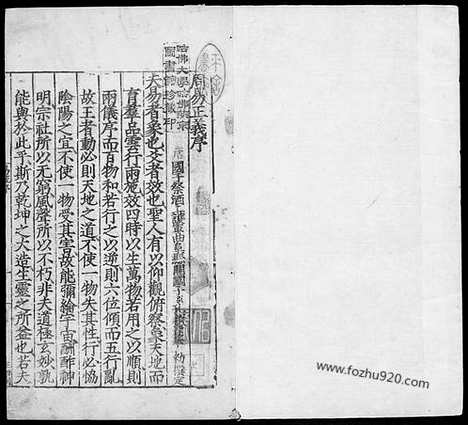 周易正義序
唐國子祭酒上護軍曲阜縣開國子
夫易者象也爻者效也聖人有以仰觀俯察象天地而
育羣品雲行雨施效四時以生萬物若用之以順則
兩儀序而百物和若行之以逆則六位傾而五行亂
故王者動必則天地之道不使一物失其性行必恊
陰陽之宜不使一物受其害故能彌綸宇宙酬酢神
明宗社所以无窮風聲所以不朽非夫道極玄妙孰
能與於此乎斯乃乾坤之大造生靈之所益也若夫
哈佛大學
圖書館珍藏印
www.fozhu920.com